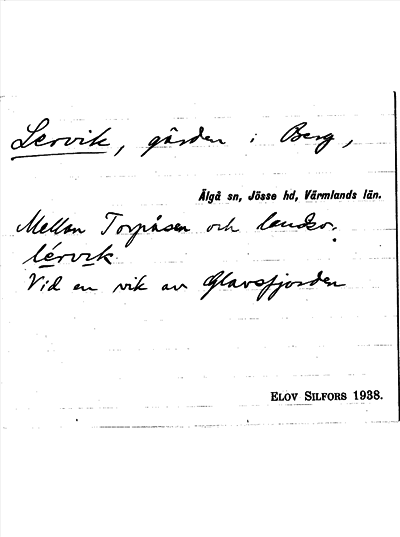 Lervik, gården i Berg,
Älgå sn, Jösse hd, Värmlands län.
Mellan Torpåsen och landsv.
lérvik
Vid en vik av Glavsfjorden
ELOV SILFORS 1938.